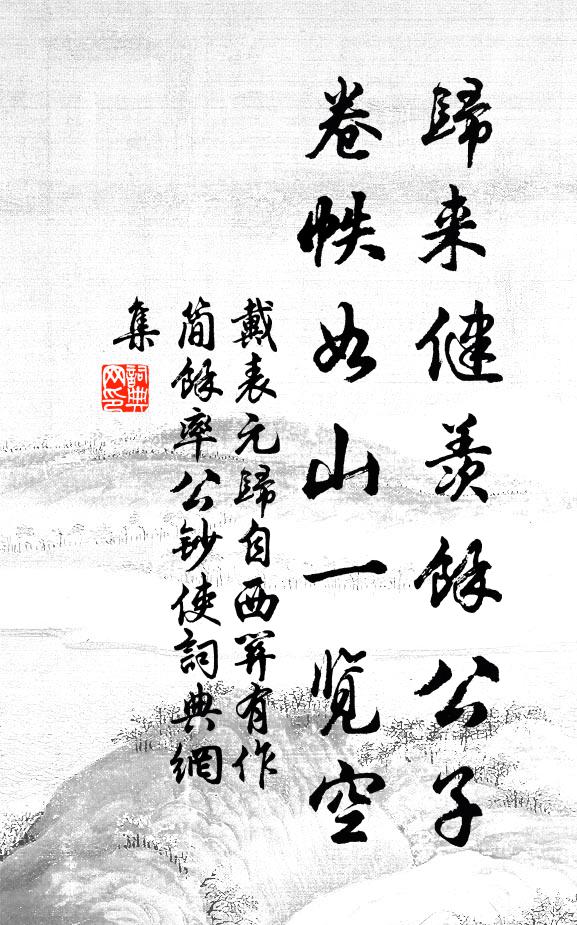 歸来健羨餘公子
卷帙如山一覽空
戴表元歸自西羿有作
简餘率公鈔使詞典網
集
詞典
网印